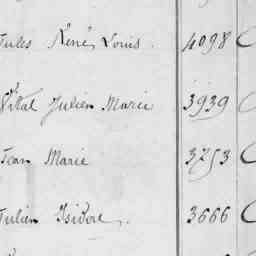 Jules René Louis. 4098
Vital Julien Marie 3939
Jean Marie 3753
Julien Isidore. 3666